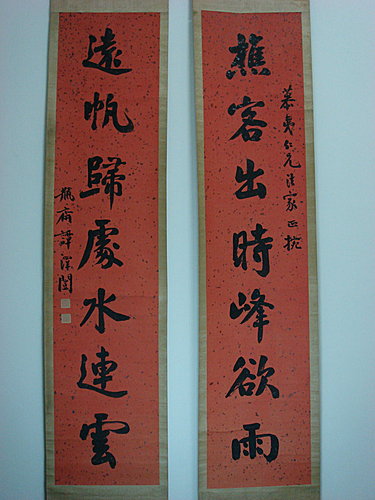 慕夷仁兄法家正捥
樵客出時峰欲雨
遠帆歸處水連雲
瓶齋譚澤闓